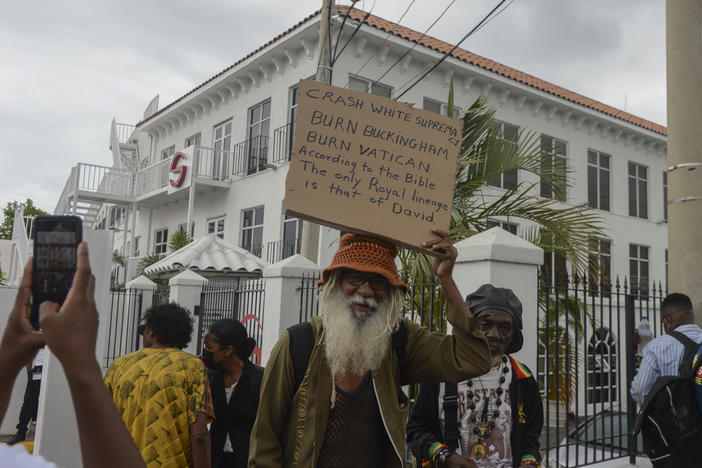 CRASH WHITE SUPREMACY
BURN BUCKINGHAM
BURN VATICAN.
According to the Bible
The only Royal lineage
- is that of David.